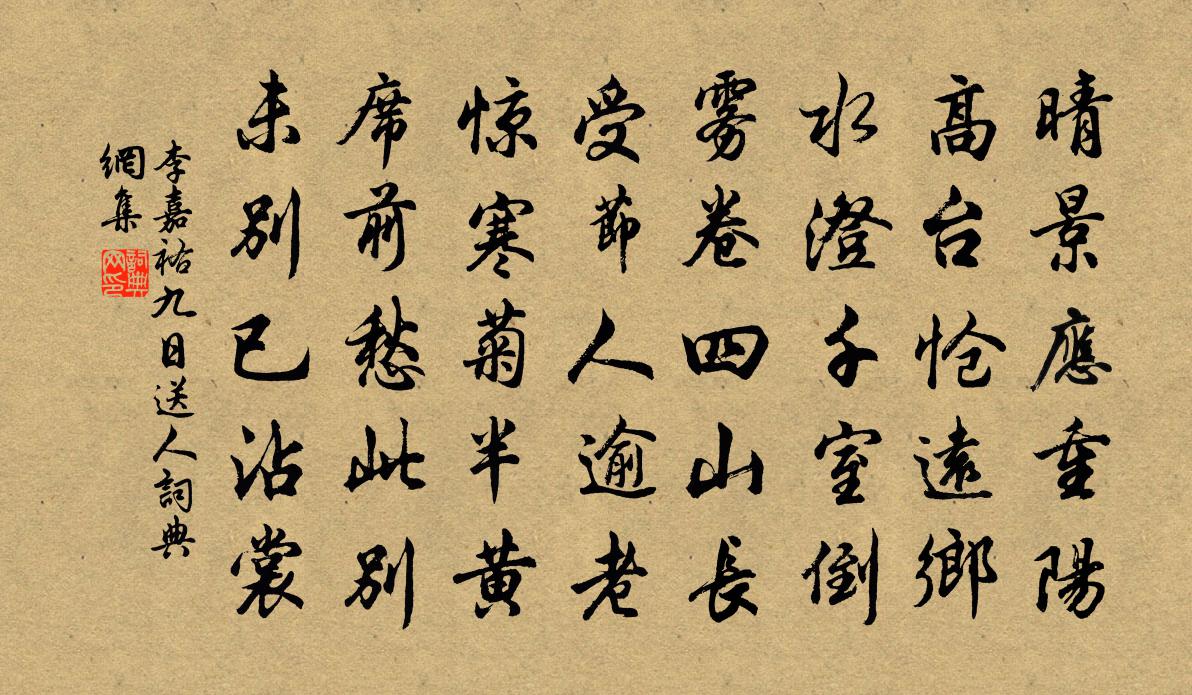 晴景應重陽
高台怆遠鄉
水澄千室倒
雾卷四山長
受節人逾老
惊寒菊半黄
席前愁此别
未别已沾裳
李嘉祐九日送人詞典
網集
詞典
网印